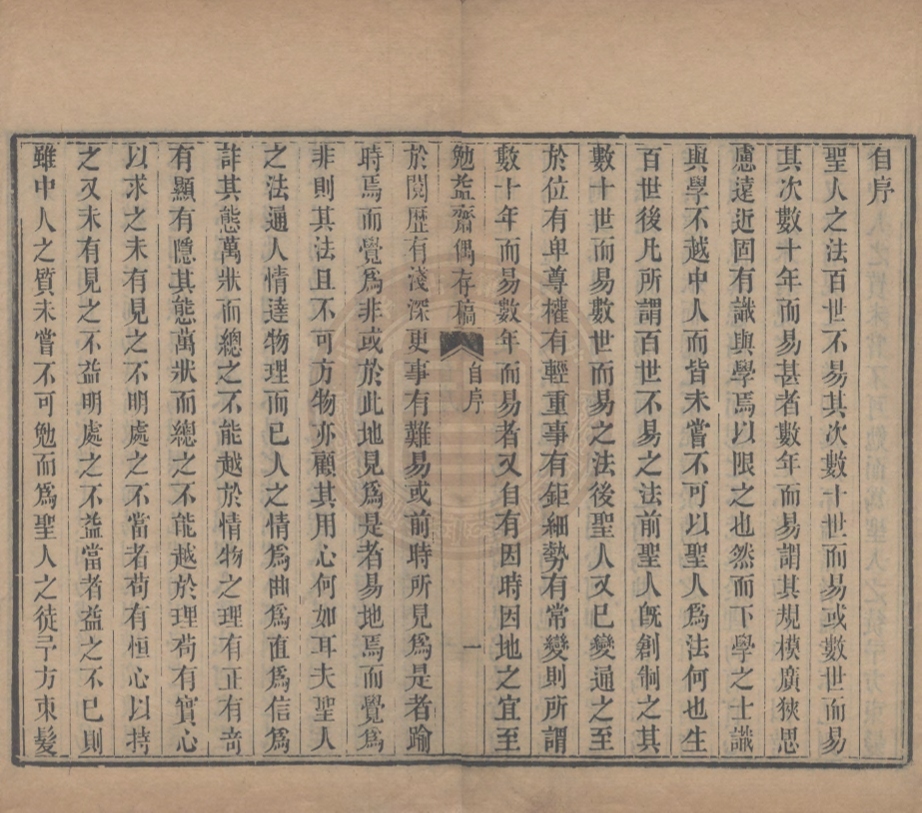 自序
聖人之法百世不易其次數十世而易或數世而易
其次數十年而易甚者數年而易謂其規模廣狹思
慮遠近固有識與學焉以限之也然而下學之士識
與學不越中人而皆未嘗不可以聖人為法何也生
百世後凡所謂百世不易之法前聖人旣創制之其
數十世而易數世而易之法後聖人又已變通之至
於位有卑尊權有輕重事有鉅細勢有常變則所謂
數十年而易數年而易者又自有因時因地之宜至
勉益齋偶存稿
自序
一
於閱歷有淺深更事有難易或前時所見為是者踰
時焉而覺為非或於此地見為是者易地焉而覺為
非則其法且不可方物亦顧其用心何如耳夫聖人
之法通人情達物理而已人之情為曲為直為信為
詐其態萬狀而總之不能越於情物之理有正有奇
有顯有隱其態萬狀而總之不能越於理苟有實心
以求之未有見之不明處之不當者苟有恒心以持
之又未有見之不益明處之不益當者益之不已則
雖中人之質未嘗不可勉而為聖人之徒予方束髮